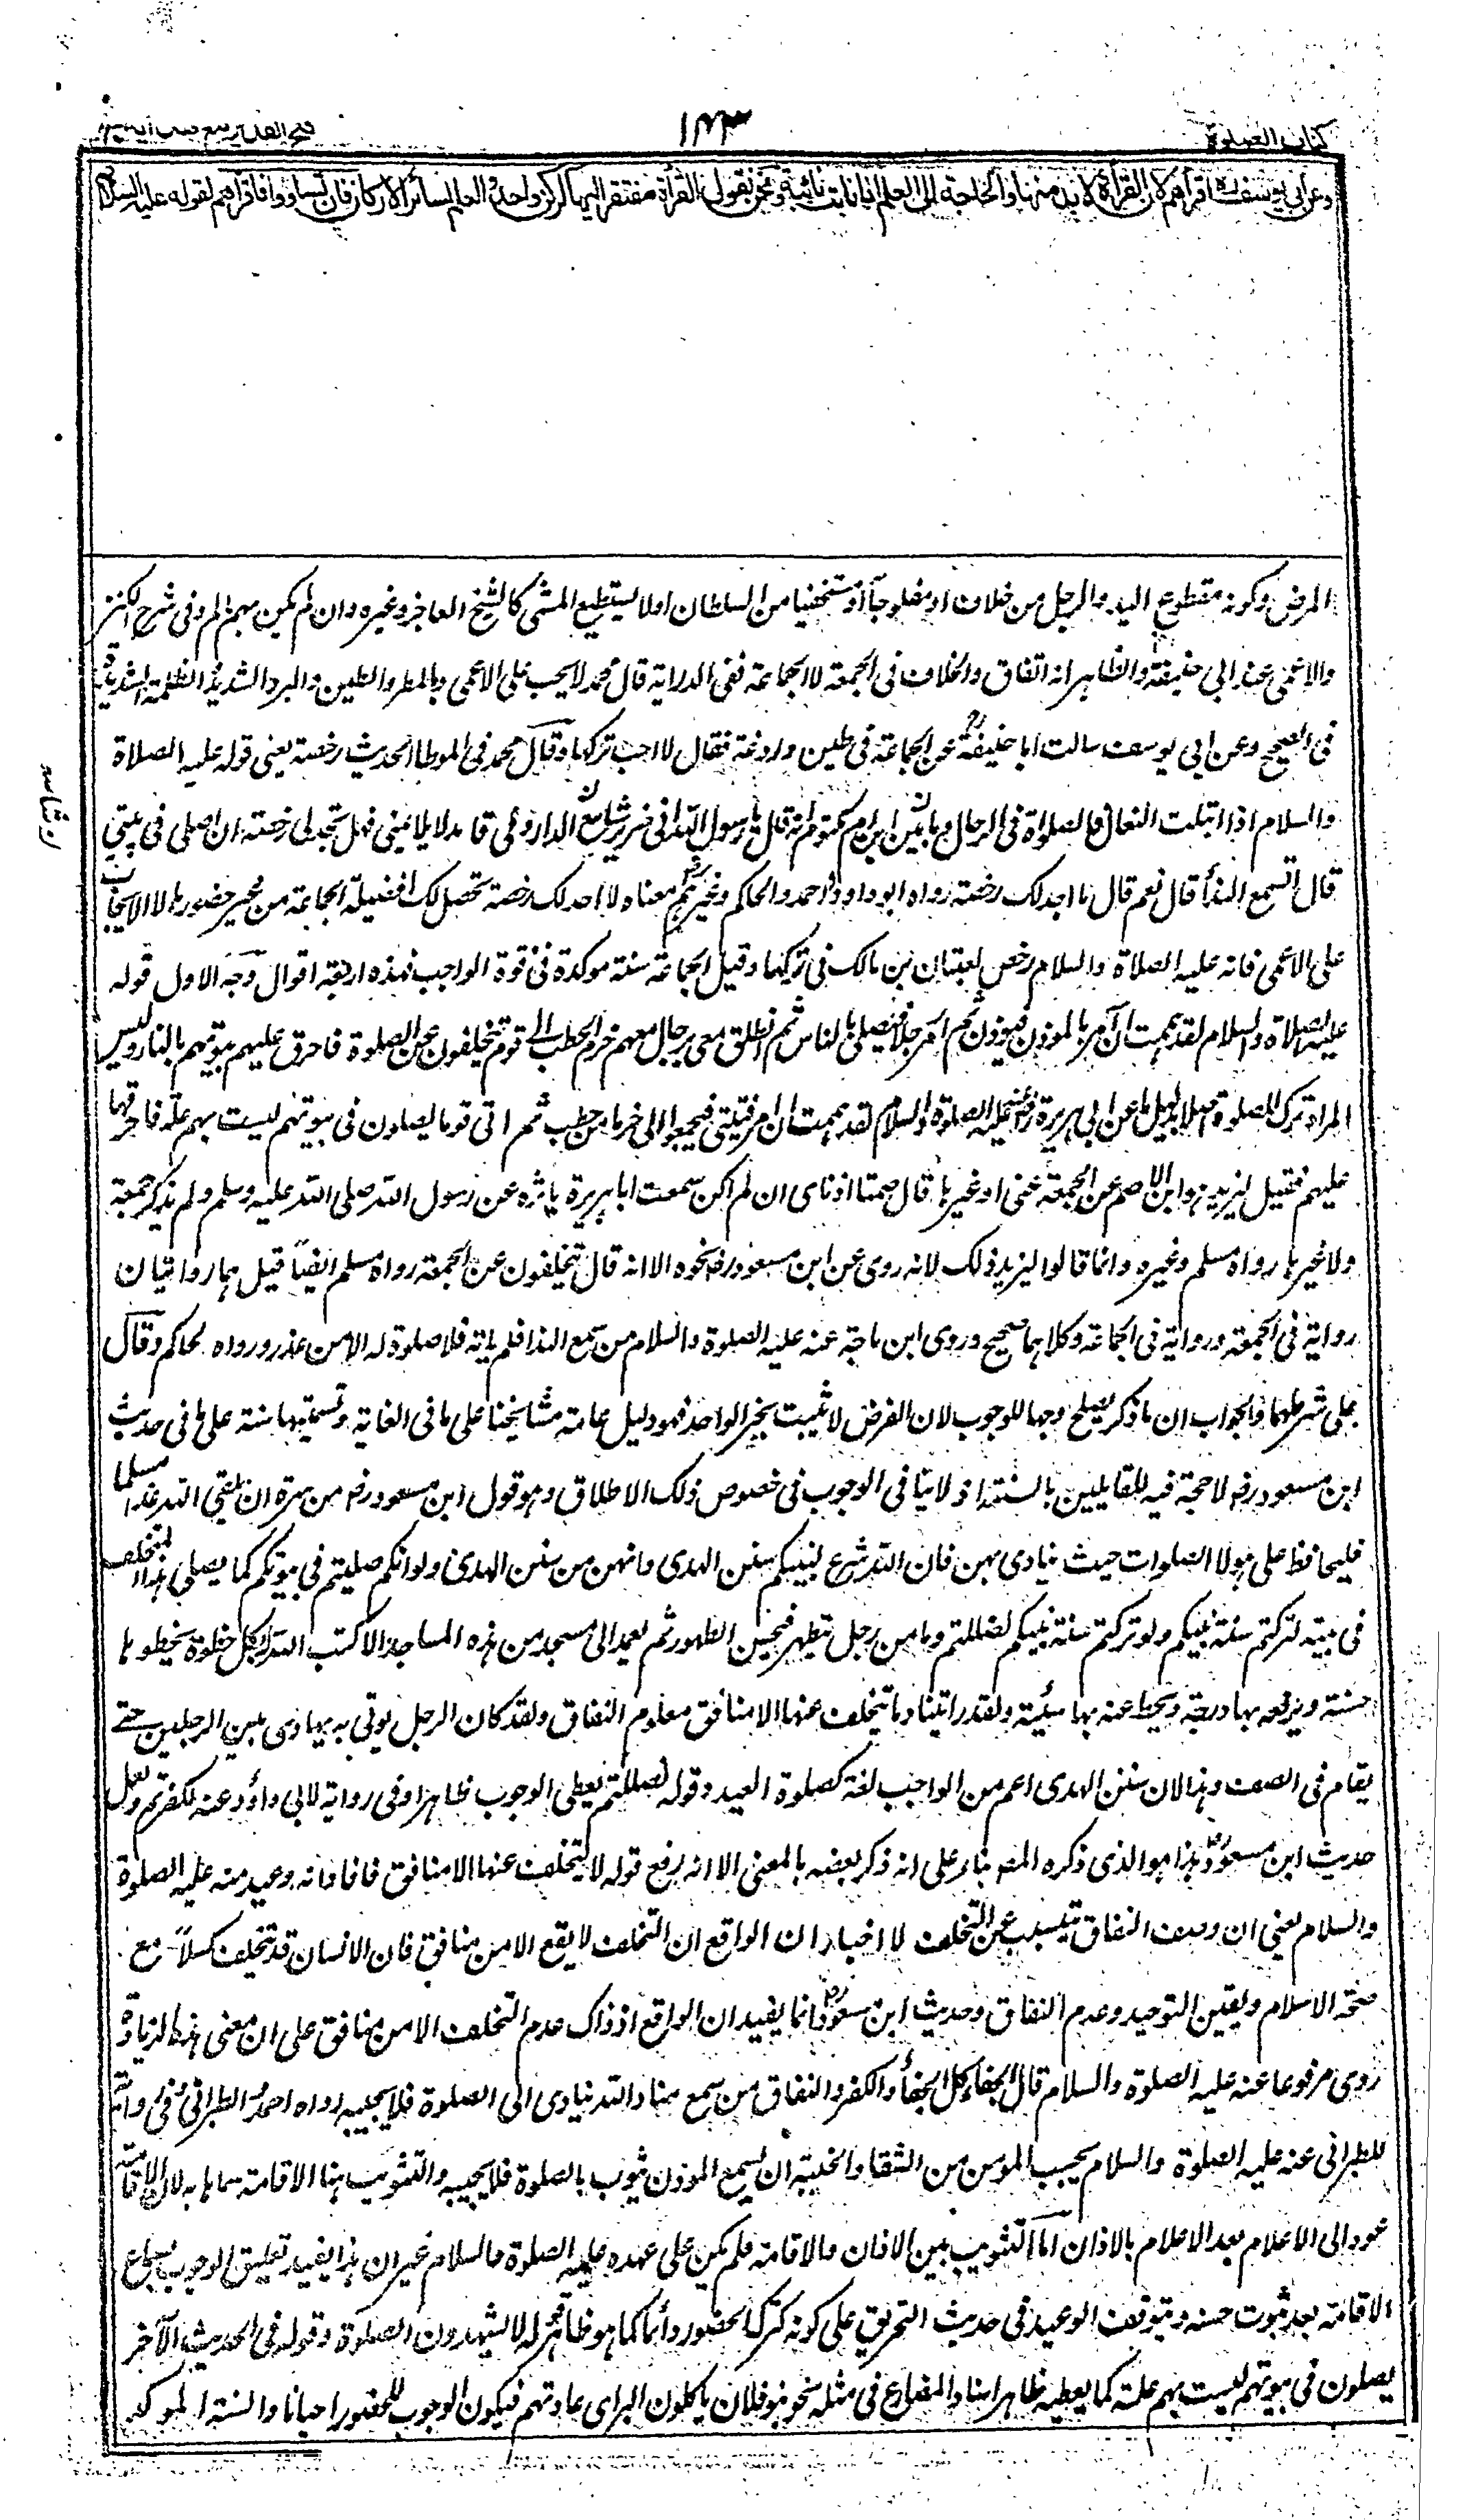 كتاب الصلوة
١٤٣
فتح القدير مع هداية
وعن ابي يوسف اقرأهم لان القرأة لا بد منها والحاجة الى العلم اذا نابت نائبة ونحن نقول القرأة مفتقر اليها لركن واحد والعلم لسائر الاركان فان تساووا فاقرأهم لقوله عليه السلام
المرض وكونه مقطوع اليد والرجل من خلاف او مفلوجا او مستخفيا من السلطان او لا يستطيع المشى كالشيخ العاجز وغيره وان لم يكن بهم الم وفى شرح الكنز
والاعمى عند ابي حنيفة والظاهر انه اتفاق والخلاف فى الجمعة لا الجماعة ففى الدراية قال محمد لا يجب على الاعمى وبالمطر والطين والبرد الشديد والظلمة الشديدة
فى الصحيح وعن ابى يوسف سالت ابا حنيفة رح عن الجماعة فى طين وردغة فقال لا احب تركها وقال محمد فى الموطا الحديث رخصة يعنى قوله عليه الصلاة
والسلام اذا ابتلت النعال فالصلواة فى الرحال وما عن ابن ام مكتوم انه قال يا رسول الله انى ضرير شاسع الدار ولى قائد لا يلايمنى فهل تجد لى رخصة ان اصلى فى بيتى
قال اتسمع الندأ قال نعم قال ما اجد لك رخصة رواه ابو داود واحمد والحاكم وغيرهم معناه لا اجد لك رخصة تحصل لك فضيلة الجماعة من غير حضورها لا الايجاب
على الاعمى فانه عليه الصلاة والسلام رخص لعتبان بن مالك فى تركها وقيل الجماعة سنة موكدة فى قوة الواجب فهذه اربعة اقوال وجه الاول قوله
عليه الصلاة والسلام لقد هممت ان آمر بالموذن فيوذن ثم آمر رجلا فيصلى بالناس ثم انطلق معى برجال معهم حزم الحطب الى قوم يتخلفون عن الصلوة فاحرق عليهم بيوتهم بالنار وليس
المراد ترك الصلوة اصلا بدليل ما عن ابى هريرة رض عنه عليه الصلوة والسلام لقد هممت ان آمر فتيتى فيجمعوا الى حزما من حطب ثم اتى قوما يصلون فى بيوتهم ليست بهم علة فاحرقها
عليهم فقيل ليزيد هو ابن الاصم عن الجمعة عنى او غيرها قال صمتا اذناى ان لم اكن سمعت ابا هريرة ياثره عن رسول الله صلى الله عليه وسلم ولم يذكر جمعة
ولا غيرها رواه مسلم وغيره وانما قالوا ليزيد ذلك لانه روى عن ابن مسعود رض نحوه الا انه قال يتخلفون عن الجمعة رواه مسلم ايضا قيل هما روايتان
رواية فى الجمعة ورواية فى الجماعة وكلاهما صحيح وروى ابن ماجة عنه عليه الصلوة والسلام من سمع الندا فلم ياته فلا صلوة له الا من عذر ورواه الحاكم وقال
على شرطهما والجواب ان ما ذكر يصلح وجها للوجوب لان الفرض لا يثبت بخبر الواحد فهو دليل عامة مشايخنا على ما فى الغاية وتسميتها سنة على ما فى حديث
ابن مسعود رض لا حجة فيه للقايلين بالسنة اذ لا تنافى الوجوب فى خصوص ذلك الاطلاق وهو قول ابن مسعود رض من سره ان يلقى الله غدا مسلما
فليحافظ على هؤلا الصلوات حيث ينادى بهن فان الله شرع لنبيكم سنن الهدى وانهن من سنن الهدى ولو انكم صليتم فى بيوتكم كما يصلى هذا المتخلف
فى بيته لتركتم سنة نبيكم ولو تركتم سنة نبيكم لضللتم وما من رجل يتطهر فيحسن الطهور ثم يعمد الى مسجد من هذه المساجد الا كتب الله له بكل خطوة يخطوها
حسنة ويرفعه بها درجة ويحط عنه بها سيئة ولقد رايتنا وما يتخلف عنها الا منافق معلوم النفاق ولقد كان الرجل يوتى به يهادى بين الرجلين حتى
يقام فى الصف وهذا لان سنن الهدى اعم من الواجب لغة كصلوة العيد وقوله لضللتم يعطى الوجوب ظاهرا وفى رواية لابى داؤد عنه لكفرتم ولعل
حديث ابن مسعود رض هذا هو الذى ذكره المص بناء على انه ذكر بعضه بالمعنى الا انه رفع قوله لا يتخلف عنها الا منافق فافاد انه وعيد منه عليه الصلوة
والسلام يعنى ان وصف النفاق يتسبب عن التخلف لا اخبار ان الواقع ان التخلف لا يقع الا من منافق فان الانسان قد يتخلف كسلا مع
صحة الاسلام ويقين التوحيد وعدم النفاق وحديث ابن مسعود رض انما يفيد ان الواقع اذ ذاك عدم التخلف الا من منافق على ان معنى هذه الزيادة
روى مرفوعا عنه عليه الصلوة والسلام قال الجفاء كل الجفأ والكفر والنفاق من سمع مناد الله ينادى الى الصلوة فلا يجيبه رواه احمد والطبرانى وفى رواية
للطبرانى عنه عليه الصلوة والسلام بحسب المومن من الشقا والخيبة ان يسمع الموذن يثوب بالصلوة فلا يجيبه والتثويب هنا الاقامة سماها به لان الاقامة
عود الى الاعلام بعد الاعلام بالاذان اما التثويب بين الاذان والاقامة فلم يكن على عهده عليه الصلوة والسلام غير ان هذا يفيد تعليق الوجوب بسماع
الاقامة بعد ثبوت حسنه ويتوقف الوعيد فى حديث التحريق على كونه لترك الحضور دائما كما هو ظاهر قوله لا يشهدون الصلوة وقوله فى الحديث الآخر
يصلون فى بيوتهم ليست بهم علة كما يعطيه ظاهر اسناد المضارع فى مثله نحو بنو فلان ياكلون البر اى عادتهم فيكون الوجوب للحضور احيانا والسنة الموكدة